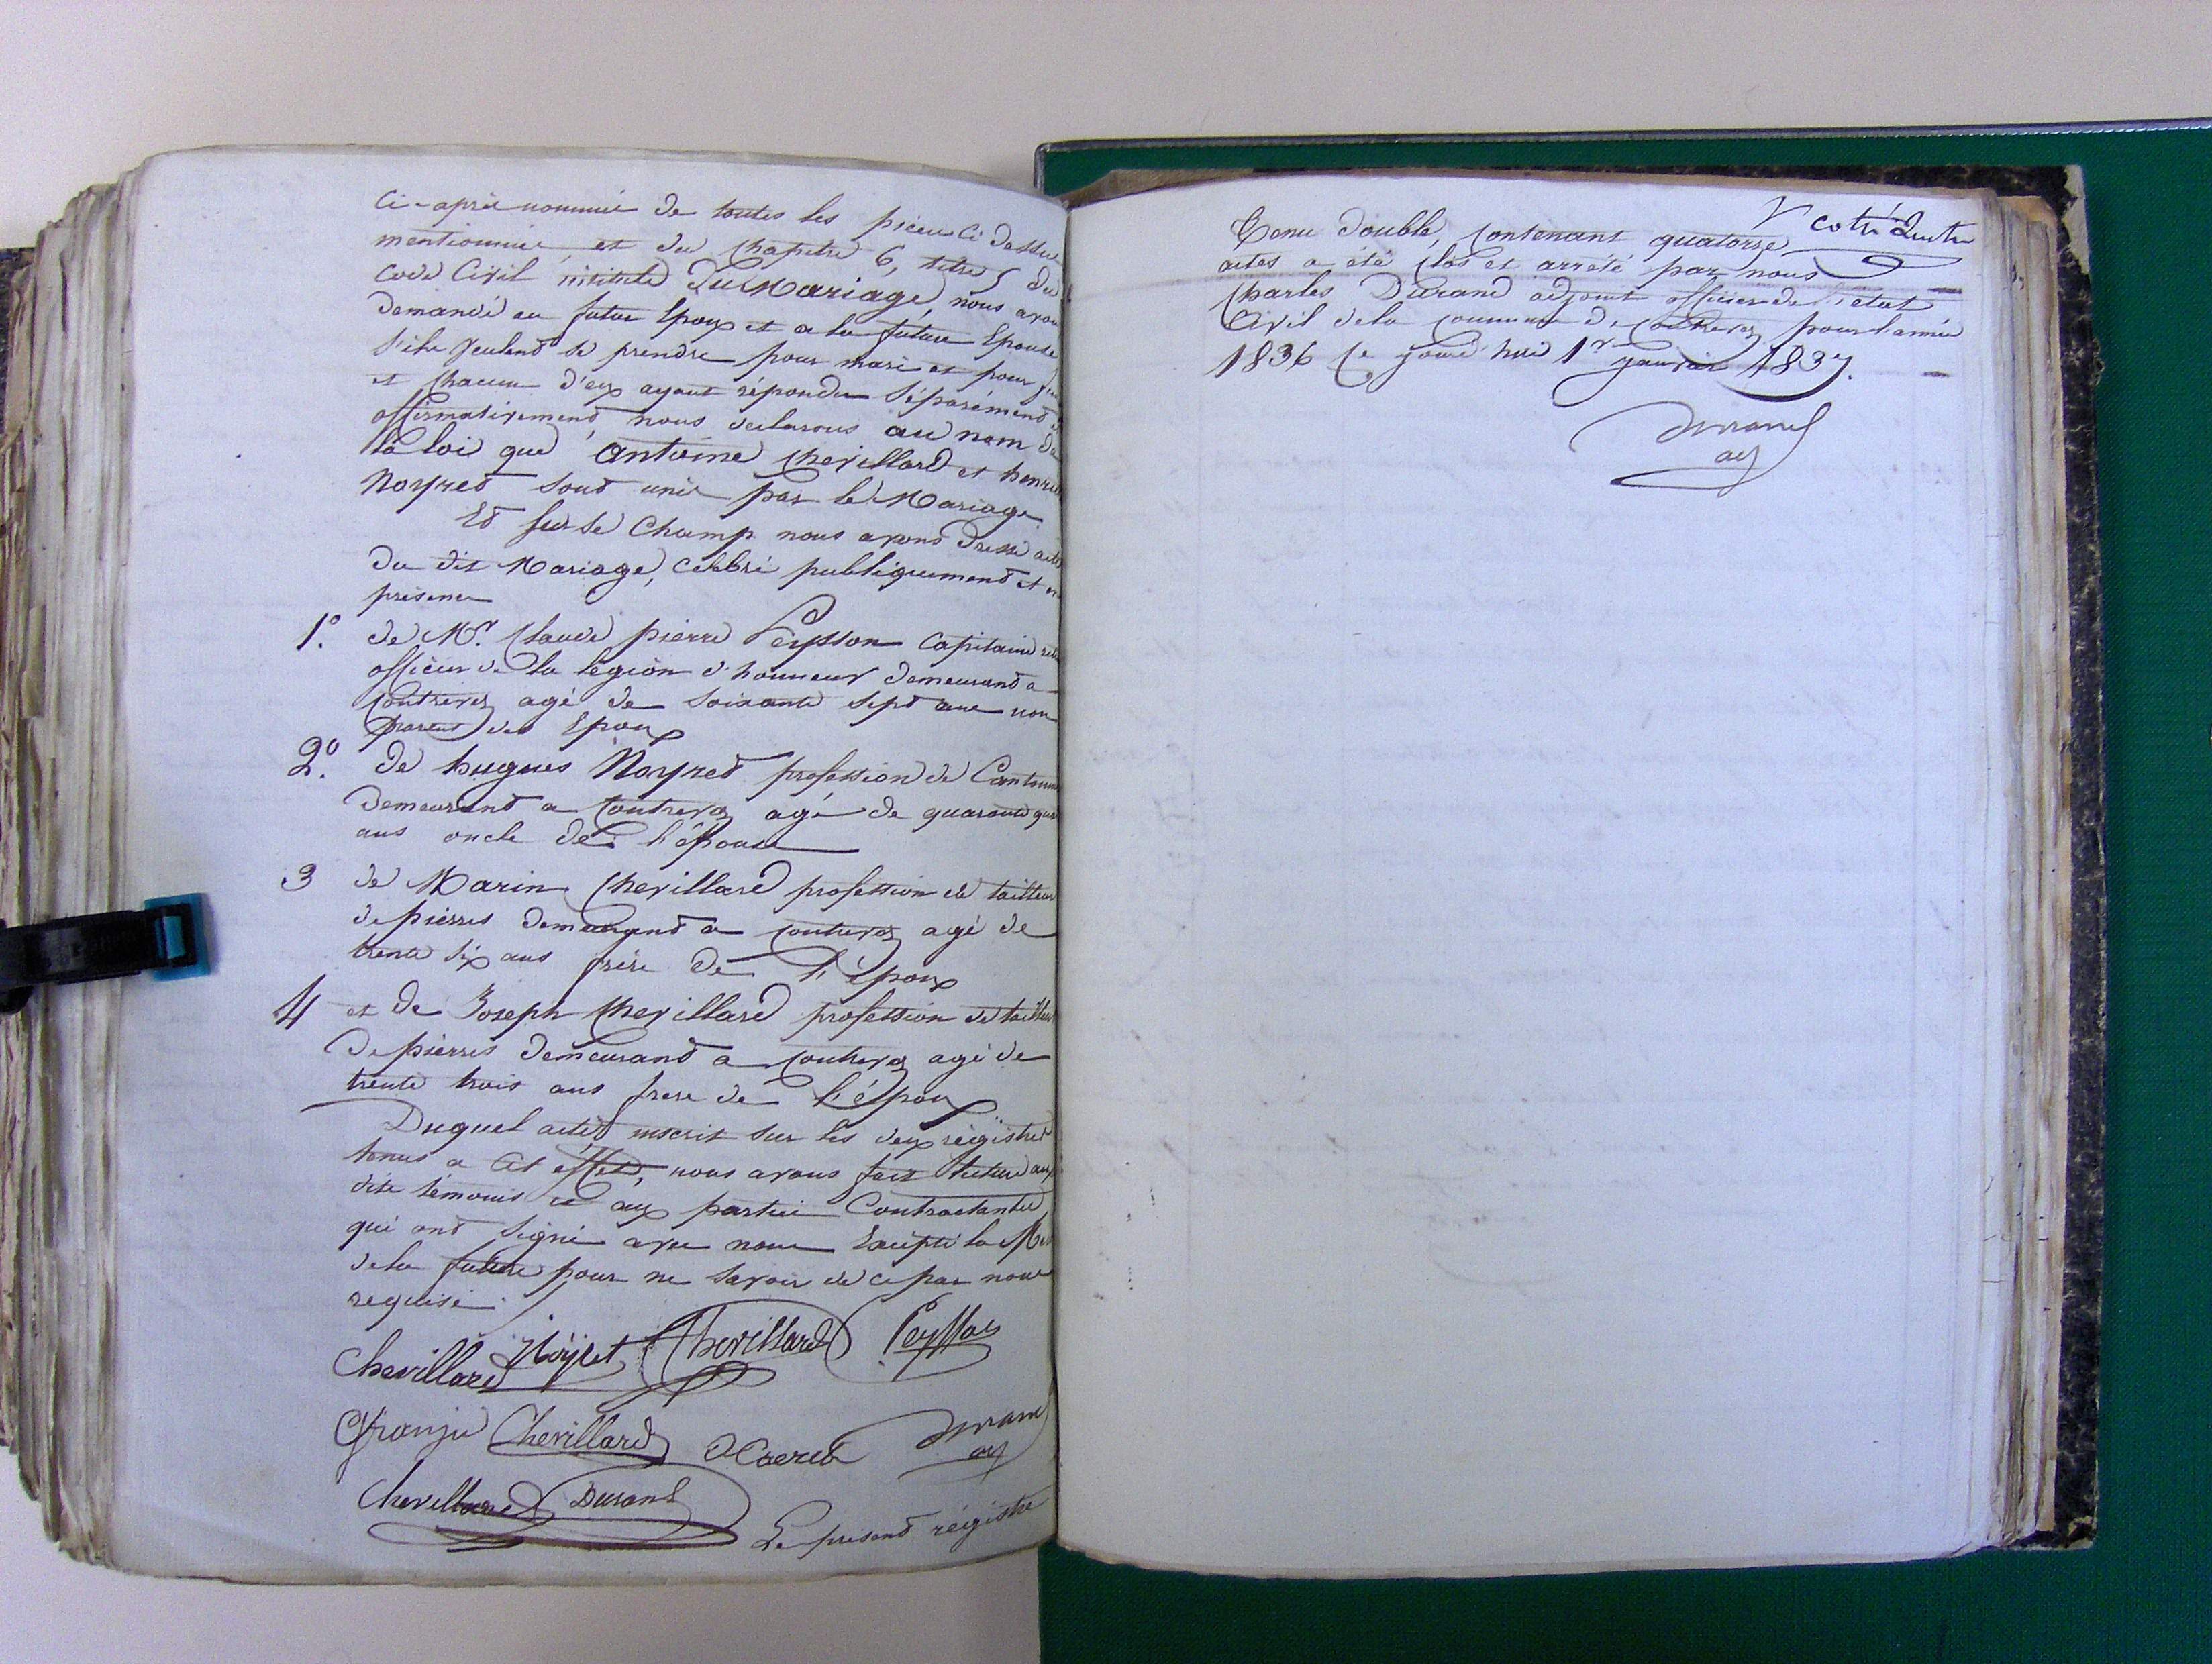 Ci-après nommée de toutes les pieces ci dessus
mentionnées, et du Chapitre 6, titre 5 du
code Civil intitulé Du Mariage, nous avons
demandé au futur Epoux et a la future Epouse
s'ils veulent se prendre pour mari et pour
et chacun d'eux ayant répondu séparément et
affirmativement, nous declarons au nom de
la loi que Antoine Chevillard et henri
Noyret sont unis par le Mariage.
Et sur le Champ nous avons dressé acte
du dit Mariage, célébré publiquement et en
présence
1.° de Mr. Claude pierre Peysson Capitaine
officier de la légion d'honneur demeurant a
Coutrevoz agé de soixante sept ans non
parent des Epoux
2.° de hugues Noyret profession de Cantonn
demeurant a Coutrevoz agé de quarante
ans oncle de l'épouse
3 de Marin Chevillard profession de tailleur
de pierres demeurant a Coutrevoz agé de
trente six ans frère de l'époux
4 et de Joseph Chevillard profession de tailleur
de pierres demeurant a Coutrevoz agé de
trente trois ans frere de l'époux
Duquel acte inscrit sur les deux régistres
tenus a cet effet, nous avons fait lecture aux
dits témoins et aux parties Contractantes
qui ont signé avec nous Excepté la
de la future pour ne savoir de ce par nous
requise.
Chevillard Noÿret Chevillard Peysson
Granju Chevillard Durand
adj
Chevillard Durand
Le present régistre
coté
tenu double, contenant quatorze
actes a été clos et arrêté par nous
Charles Durand adjoint officier de l'état
Civil de la commune de Coutrevoz pour l'année
1836 Ce jourd'hui 1er Janvier 1837.
Durand
adj